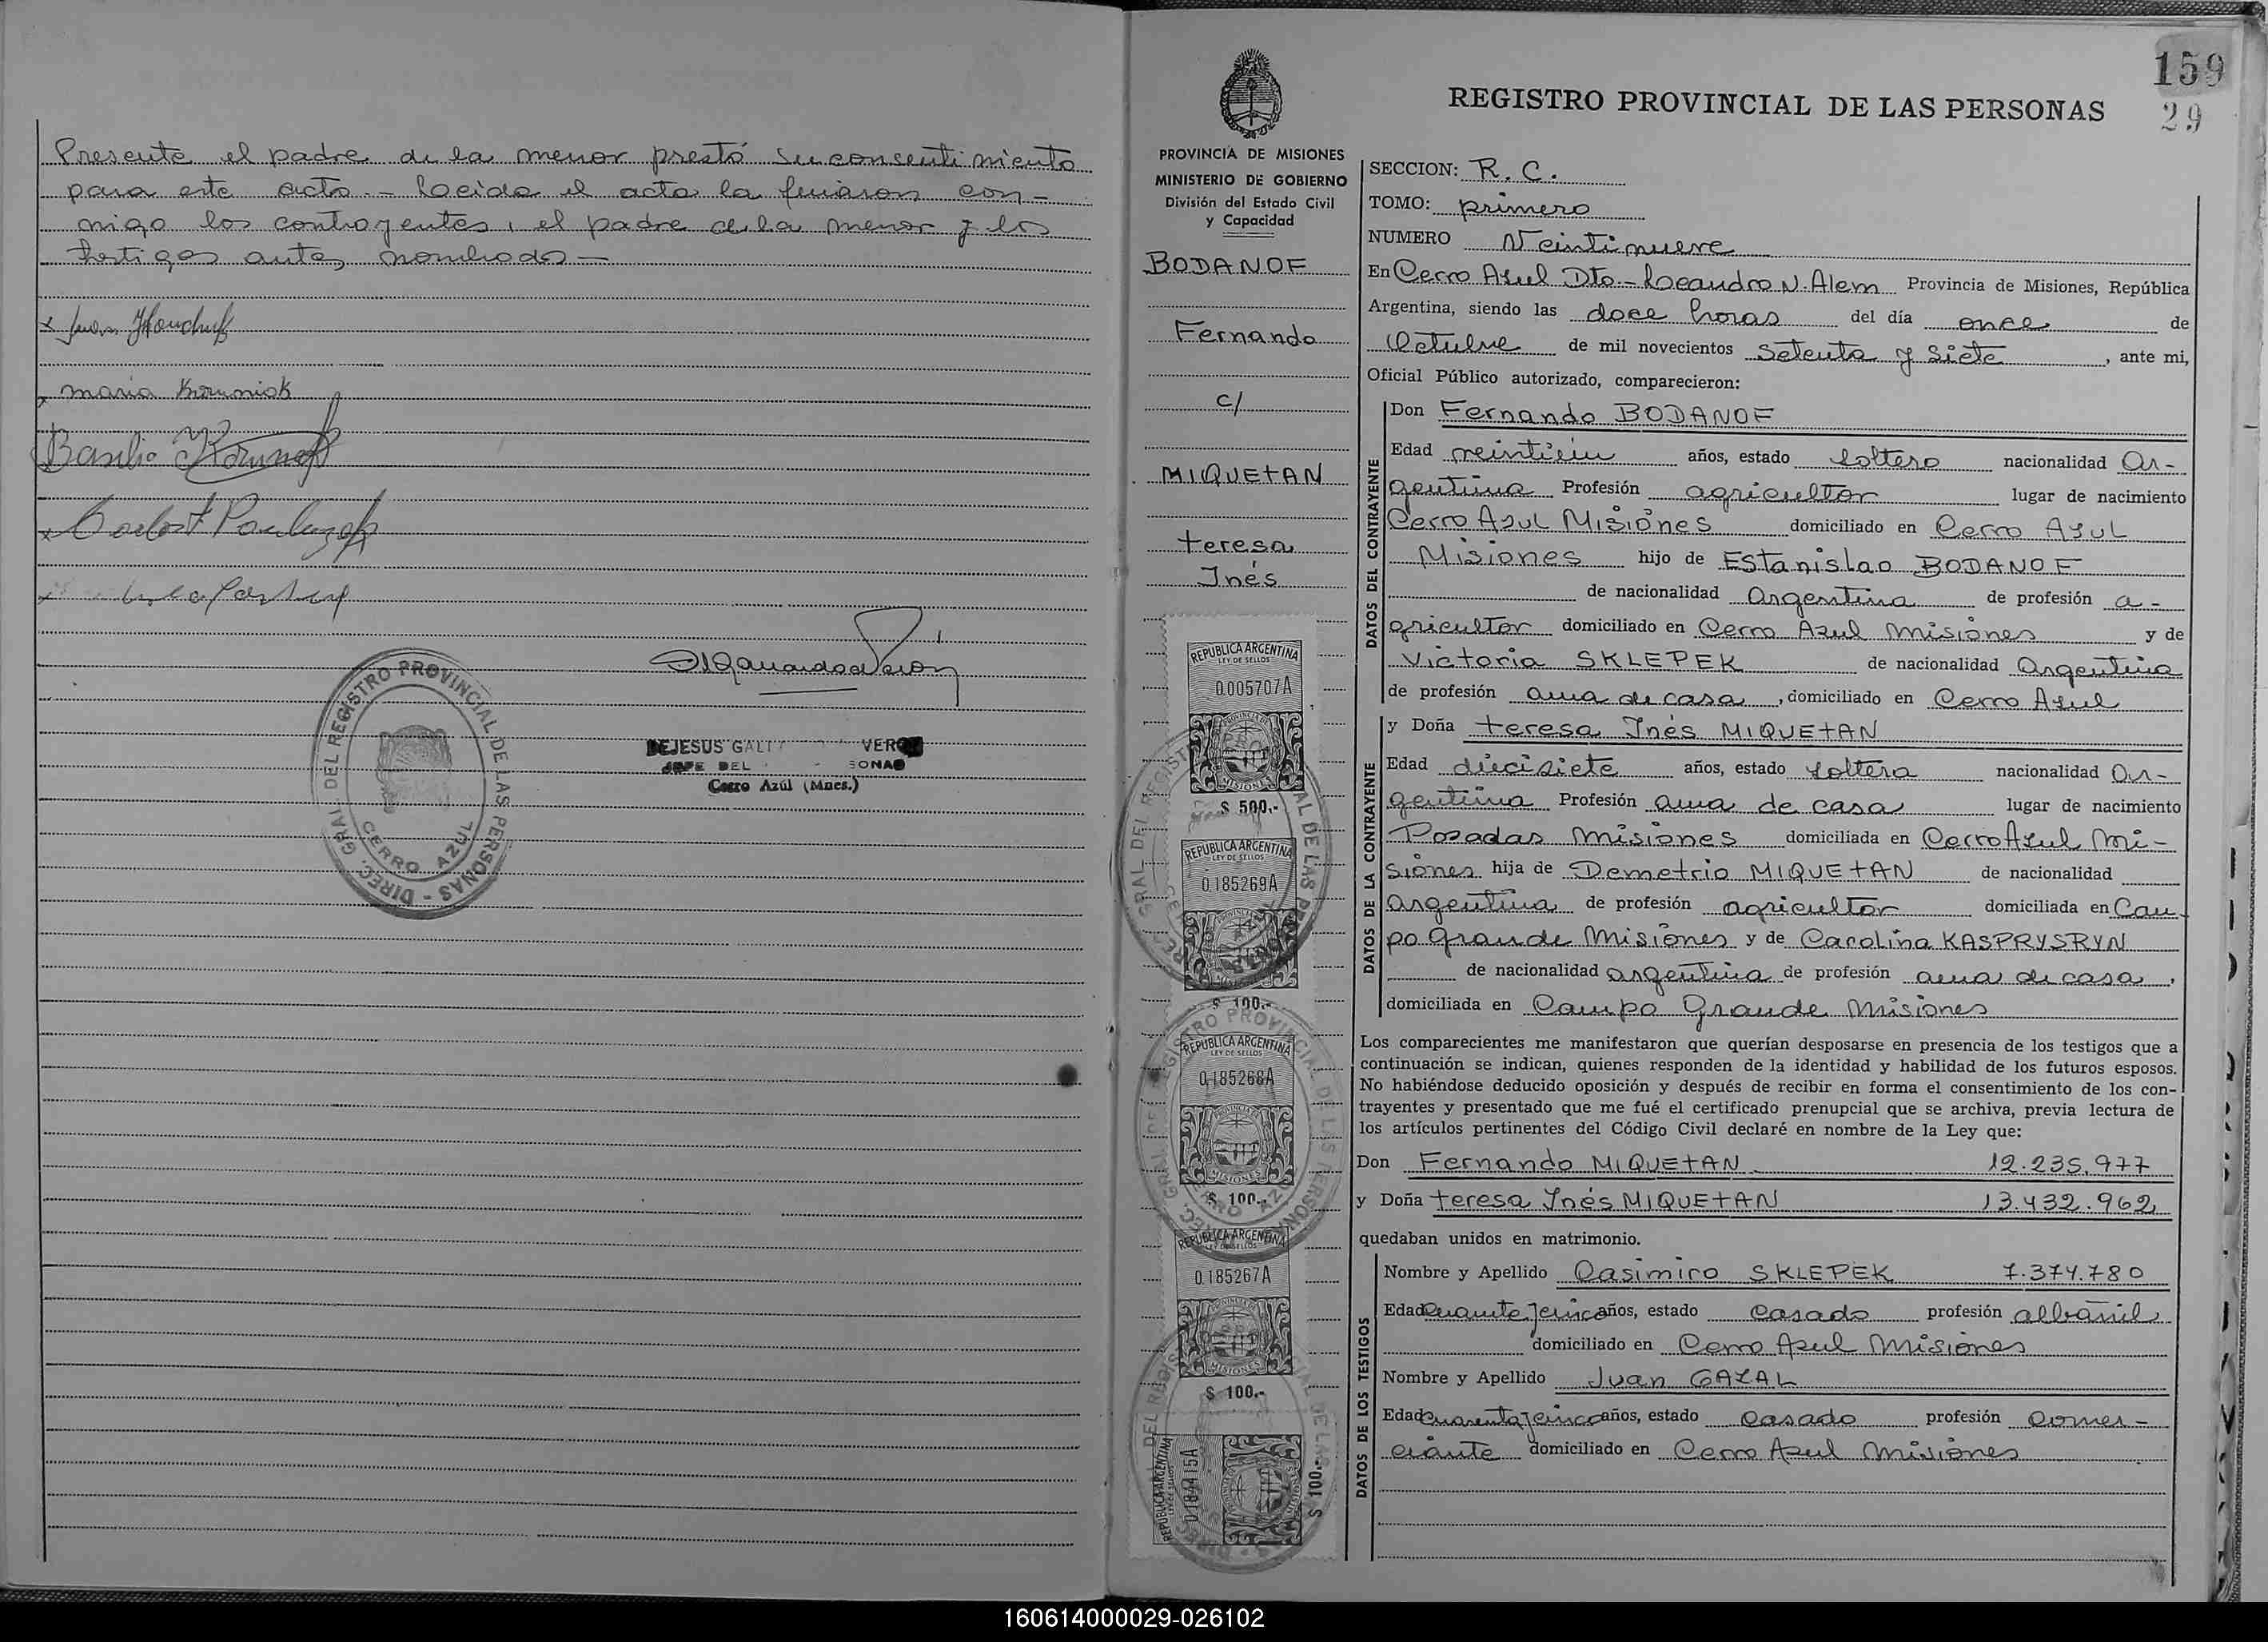 Presente el padre de la menor prestó su consentimiento
para este acto.- Leida el acta la firmaron con-
migo los contrayentes, el padre de la menor y los
testigos antes nombrados -
x Juan
x maria
Basilio
DIREC. GRAL DEL REGISTRO PROVINCIAL DE LAS PERSONAS -
CERRO AZUL
DEJESUS
Cerro Azúl (Mnes.)
159
29
REGISTRO PROVINCIAL DE LAS PERSONAS
PROVINCIA DE MISIONES
MINISTERIO DE GOBIERNO
División del Estado Civil
y Capacidad
BODANOF
Fernando
c/
MIQUETAN
teresa
Inés
REPUBLICA ARGENTINA
LEY DE SELLOS
0.005707A
PROVINCIA DE
MISIONES
$ 500.-
REPUBLICA ARGENTINA
LEY DE SELLOS
0.185269A
$ 100.-
REPUBLICA ARGENTINA
LEY DE SELLOS
0.185268A
MISIONES
$ 100.-
REPUBLICA ARGENTINA
LEY DE SELLOS
0.185267A
MISIONES
$ 100.-
REPUBLICA ARGENTINA
0.184415A
$ 100.-
SECCION: R. C.
TOMO: primero
NUMERO Veintinueve
En Cerro Azul Dto.- Leandro N. Alem Provincia de Misiones, República
Argentina, siendo las doce horas del día once de
Octubre de mil novecientos setenta y siete, ante mi,
Oficial Público autorizado, comparecieron:
DATOS DEL CONTRAYENTE
Don Fernando BODANOF
Edad años, estado soltero nacionalidad Ar-
gentina Profesión agricultor lugar de nacimiento
Cerro Azul Misiones domiciliado en Cerro Azul
Misiones hijo de Estanislao BODANOF
de nacionalidad Argentina de profesión a-
gricultor domiciliado en Cerro Azul Misiones y de
Victoria SKLEPEK de nacionalidad Argentina
de profesión ama de casa, domiciliado en Cerro Azul
DATOS DE LA CONTRAYENTE
y Doña teresa Inés MIQUETAN
Edad diecisiete años, estado soltera nacionalidad Ar-
gentina Profesión ama de casa lugar de nacimiento
Posadas Misiones domiciliada en Cerro Azul Mi-
siones hija de Demetrio MIQUETAN de nacionalidad
argentina de profesión agricultor domiciliada en Cam-
po Grande Misiones y de Carolina KASPRYSRYN
de nacionalidad argentina de profesión ama de casa,
domiciliada en Campo Grande Misiones
Los comparecientes me manifestaron que querían desposarse en presencia de los testigos que a
continuación se indican, quienes responden de la identidad y habilidad de los futuros esposos.
No habiéndose deducido oposición y después de recibir en forma el consentimiento de los con-
trayentes y presentado que me fué el certificado prenupcial que se archiva, previa lectura de
los artículos pertinentes del Código Civil declaré en nombre de la Ley que:
Don Fernando MIQUETAN 12.235.977
y Doña teresa Inés MIQUETAN 13.432.962
quedaban unidos en matrimonio.
DATOS DE LOS TESTIGOS
Nombre y Apellido Casimiro SKLEPEK 7.374.780
Edad años, estado casado profesión albañil
domiciliado en Cerro Azul Misiones
Nombre y Apellido Juan GAZAL
Edad cuarentaycinco años, estado casado profesión comer-
ciante domiciliado en Cerro Azul Misiones
160614000029-026102